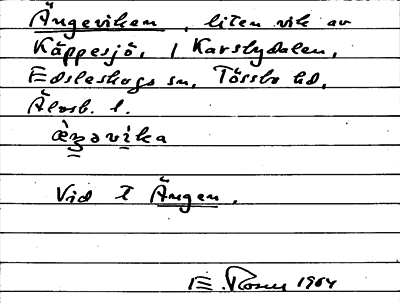 Ängeviken, liten vik av
Käppesjö, i Karsbydalen,
Edsleskogs sn, Tössbo hd,
Älvsb. l.
Vid t Ängen.
E. Rosen 1964